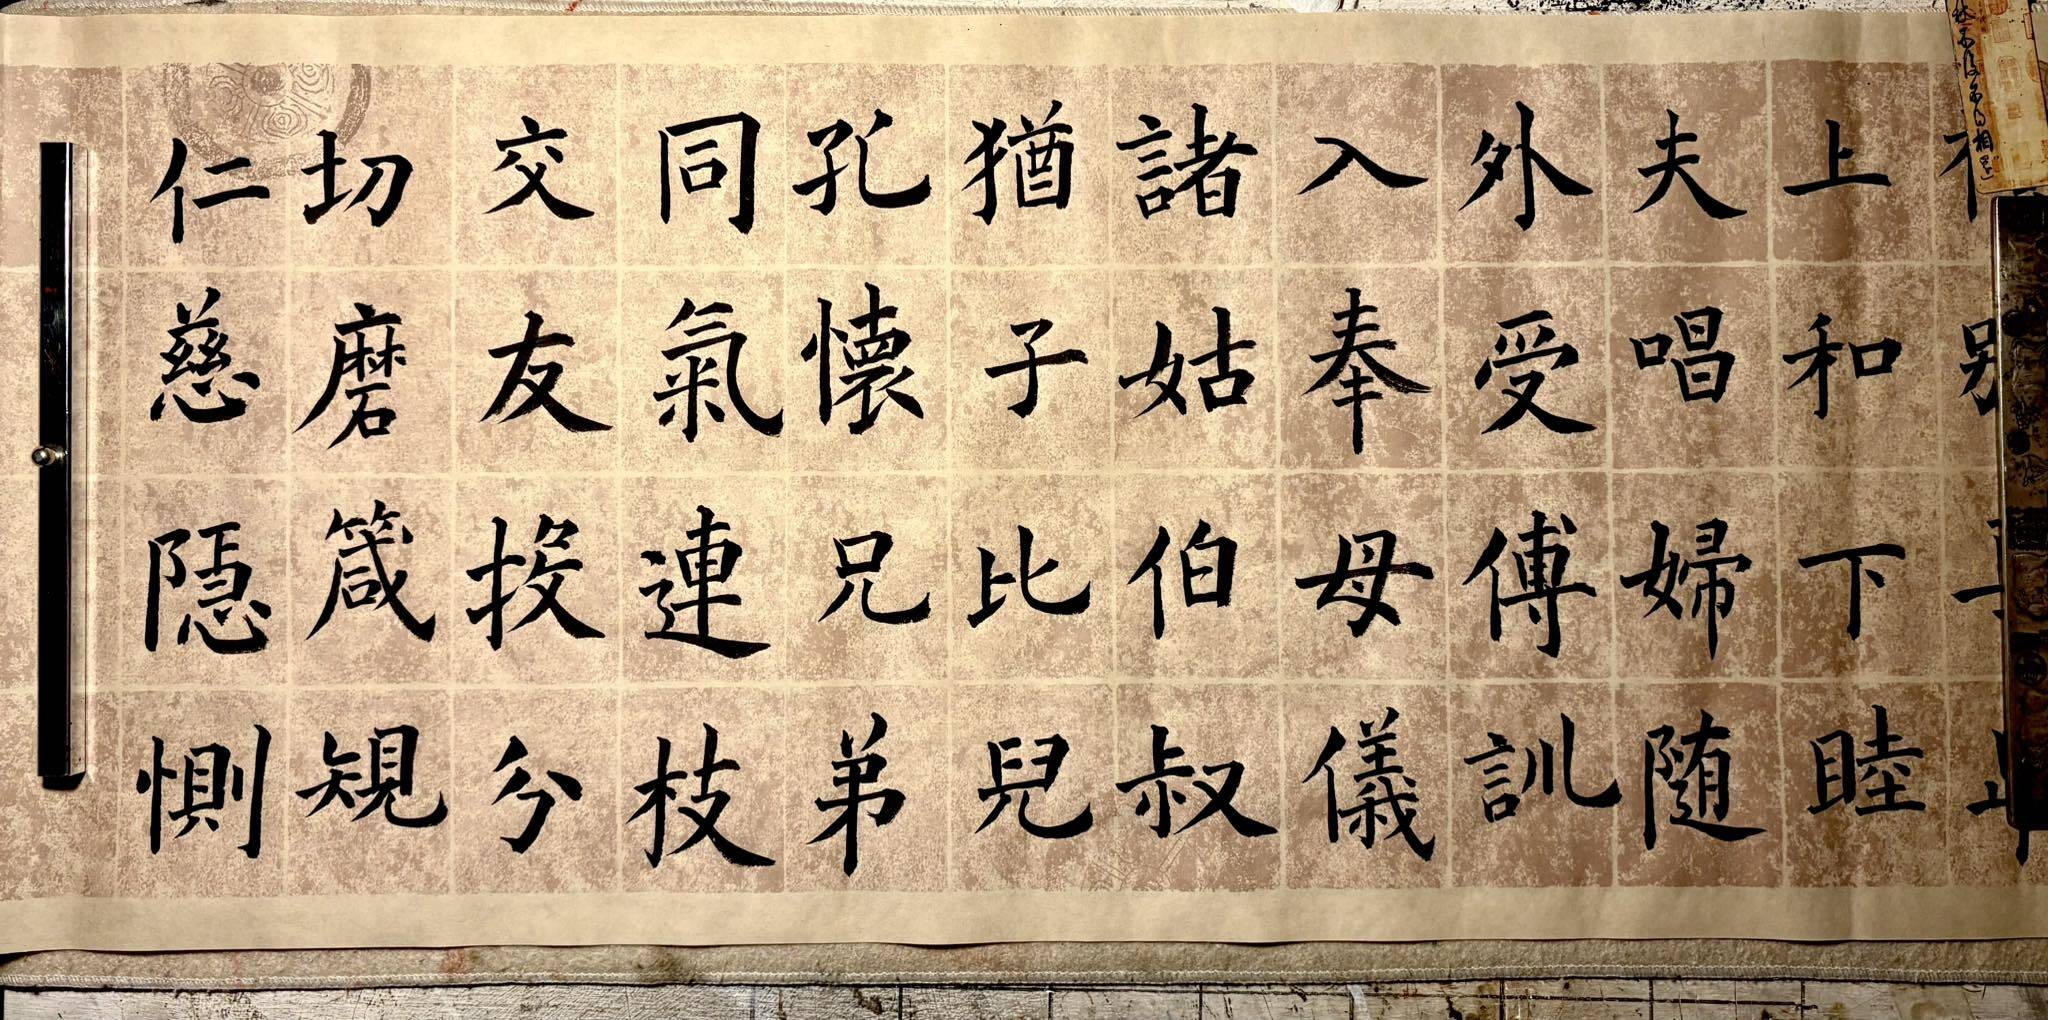 上和下睦
夫唱婦随
外受傅訓
入奉母儀
諸姑伯叔
猶子比兒
孔懷兄弟
同氣連枝
交友投分
切磨箴規
仁慈隱惻